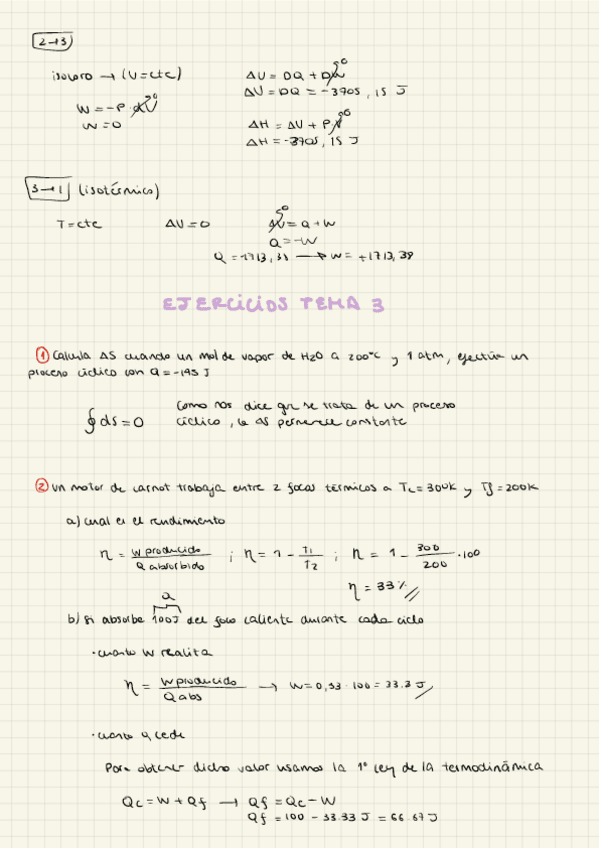 2→3
isocoro → (V=cte)
ΔU = DQ + DW 0
ΔU = DQ = -3705,15 J
W = -P · dV 0
W = 0
ΔH = ΔU + P·V 0
ΔH = -3705,15 J
3→1 (isotérmico)
T=cte ΔU=0 ΔU 0 = Q + W
Q = -W
Q = -1713,38 → W = +1713,38
EJERCICIOS TEMA 3
① Calcula ΔS cuando un mol de vapor de H2O a 200°C y 1 atm, efectúa un
proceso cíclico con Q = -145 J
∮ dS = 0
Como nos dice que se trata de un proceso
cíclico, la ΔS permanece constante
② Un motor de carnot trabaja entre 2 focos térmicos a Tc = 300K y Tf = 200K
a) cual es el rendimiento
η = W producido / Q absorbido ; η = 1 - T1/T2 ; η = 1 - 300/200 · 100
η = 33%
Q
b) si absorbe 100J del foco caliente durante cada ciclo
· cuanto W realiza
η = W producido / Q abs → W = 0,33 · 100 = 33.3 J
· cuanto Q cede
Para obtener dicho valor usamos la 1ª ley de la termodinámica
Qc = W + Qf → Qf = Qc - W
Qf = 100 - 33.33 J = 66.67 J